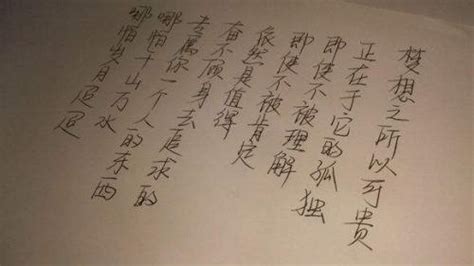 梦想之所以可贵
正在于它的孤独
即使不被理解
即使不被肯定
依然是值得
奋不顾身去追求的
专属你一个人的东西
哪怕千山万水
哪怕岁月迢迢